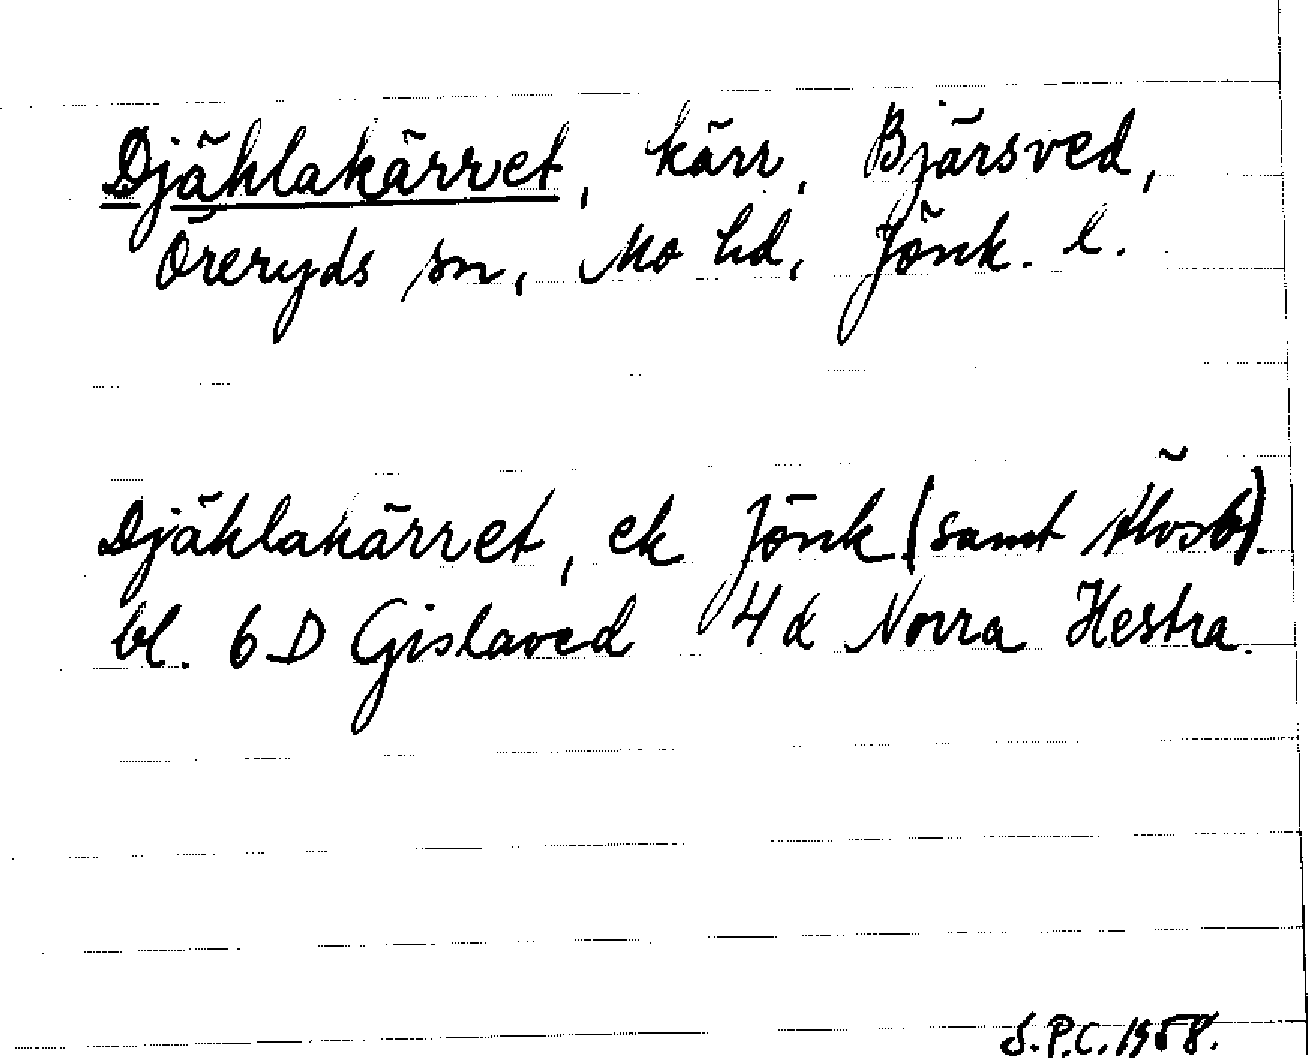 Djäklakärret, kärr, Bjärsved,
Öreryds sn, Mo hd, Jönk. l.
Djäklakärret, ek Jönk (samt Älvsb).
bl. 6 D Gislaved 4 d Norra Hestra.
S.P.C. 1958.